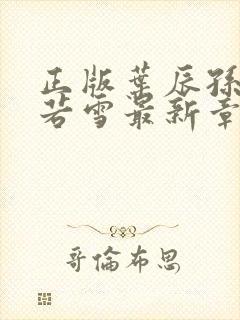 正版葉辰孫
若雪最新章
哥倫布思